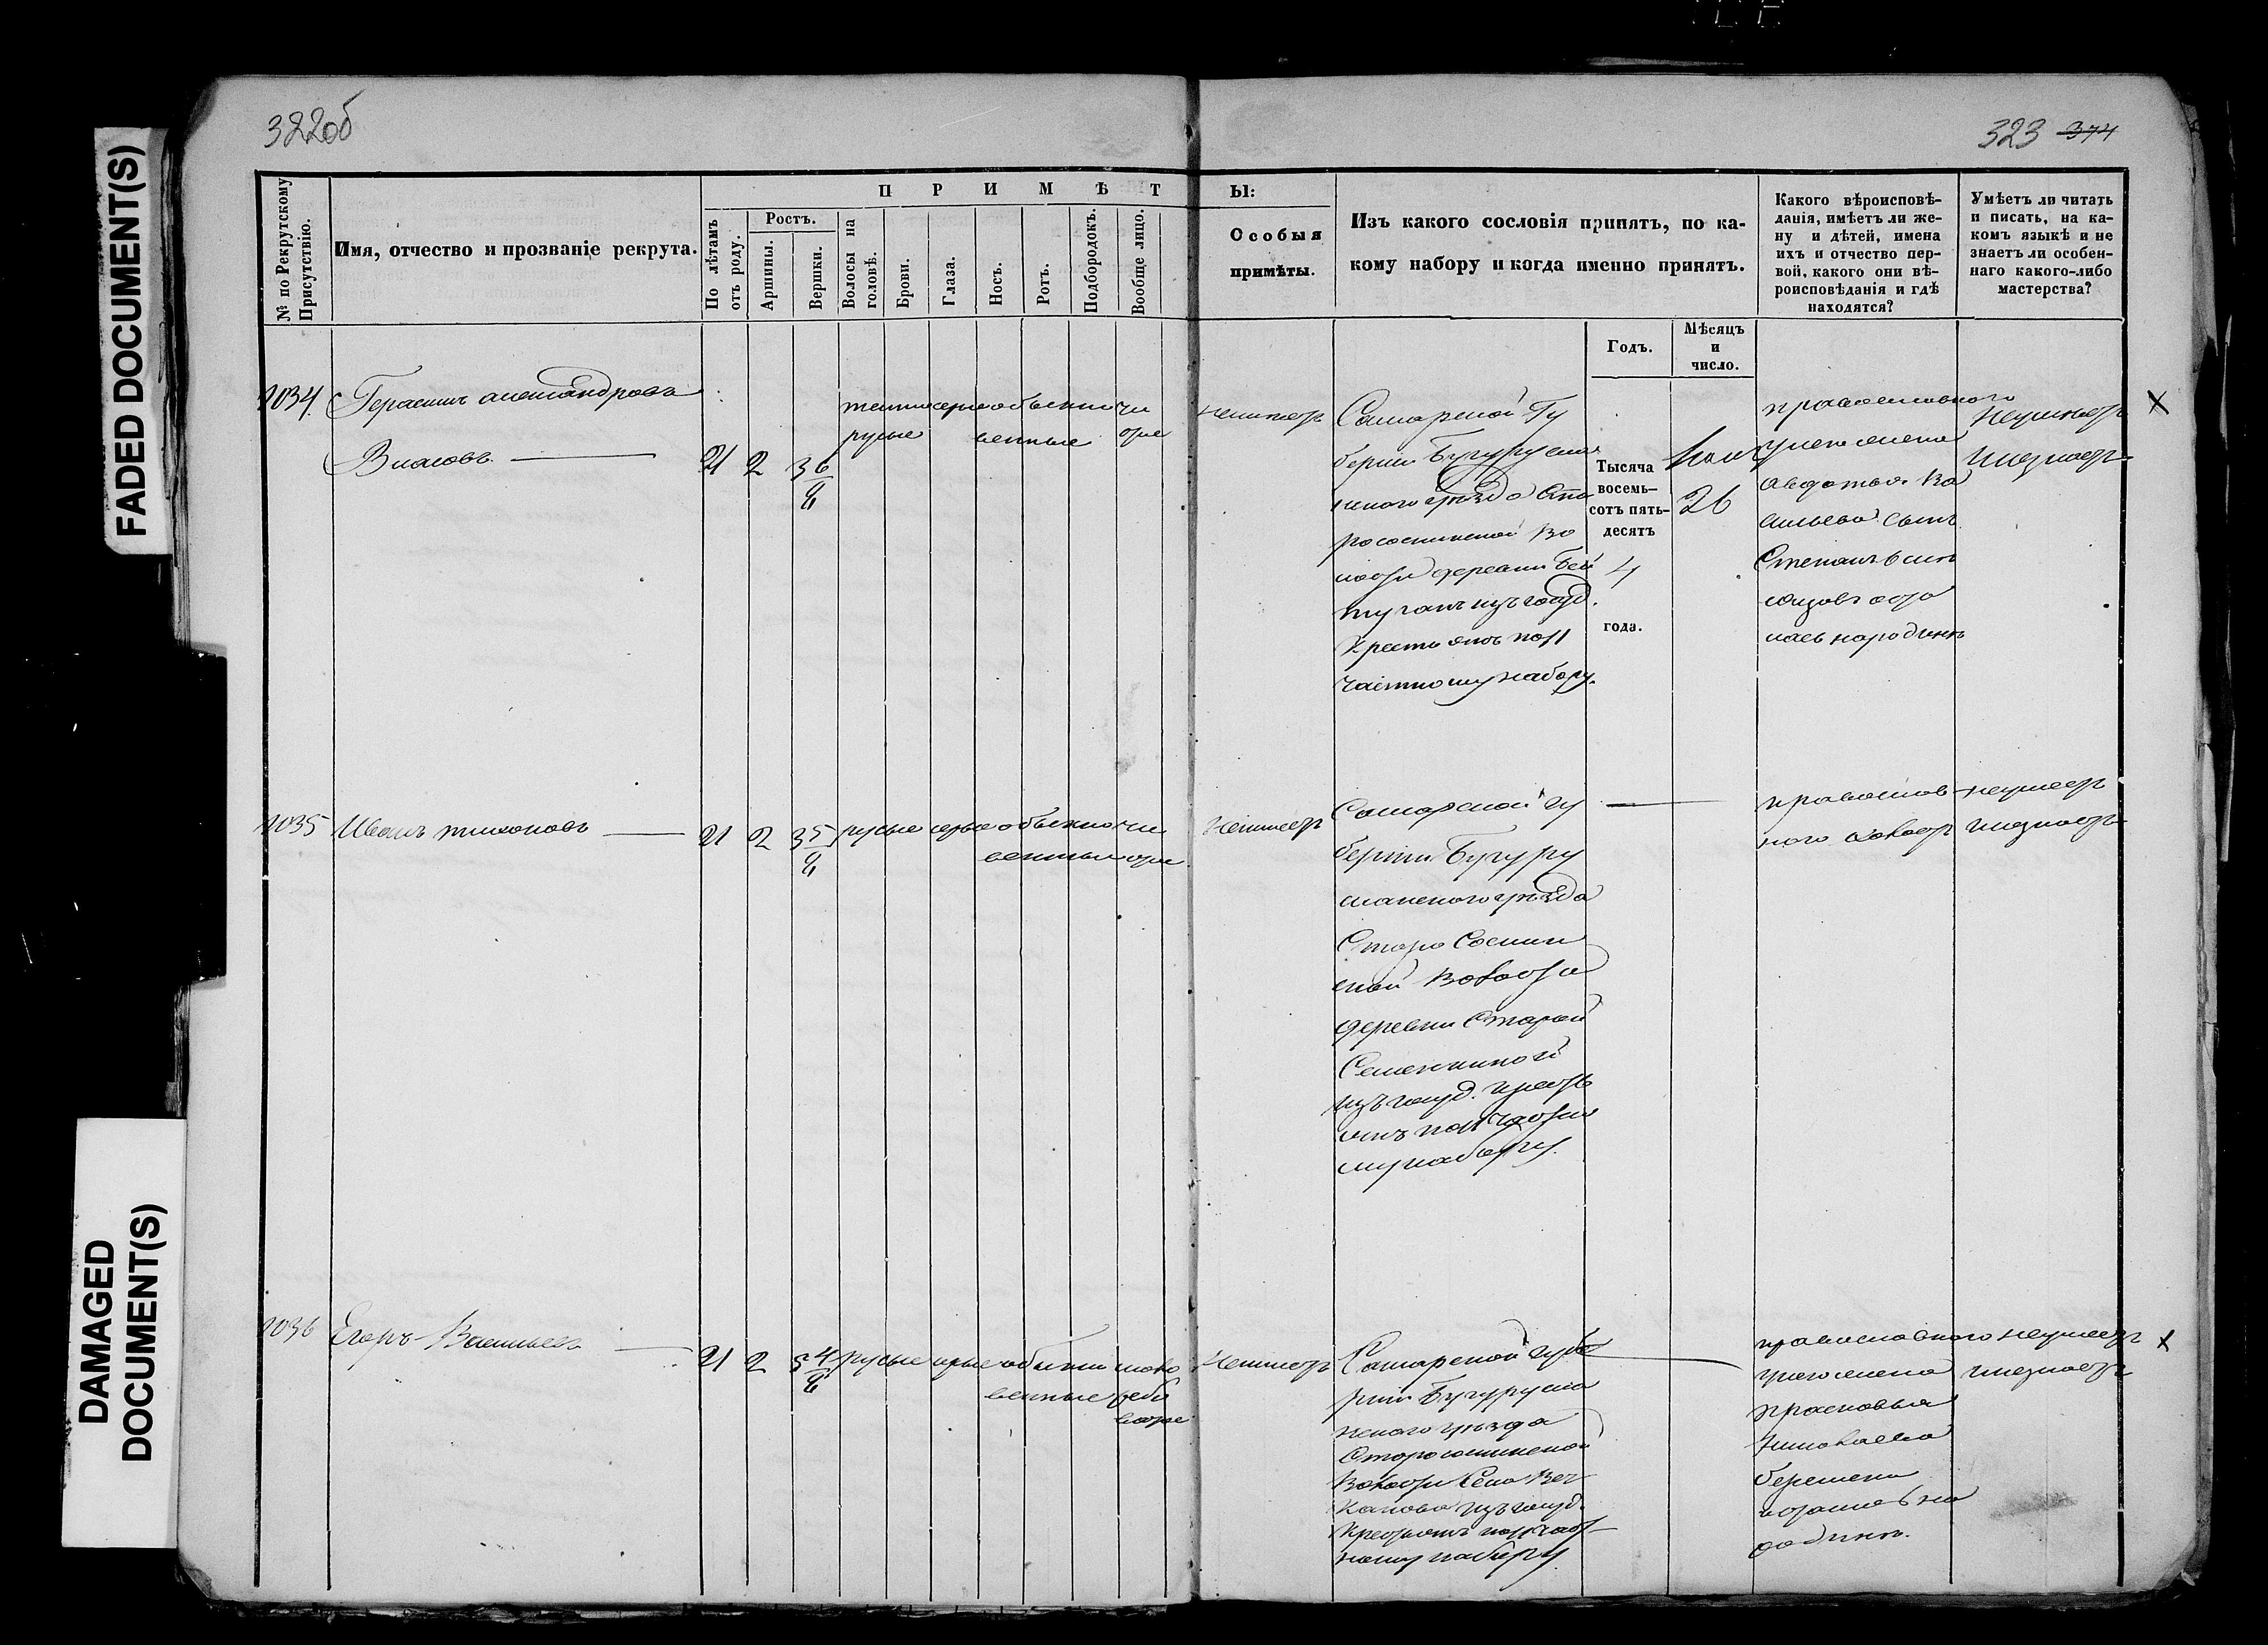 322об
323 374
FADED DOCUMENT(S)
DAMAGED
DOCUMENT(S)
№ по Рекрутскому
Присутствію.
Имя, отчество и прозваніе рекрута.
П Р И М Ѣ Т Ы:
По лѣтамъ
отъ роду.
Ростъ.
Аршины.
Вершки.
Волосы на
головѣ.
Брови.
Глаза.
Носъ.
Ротъ.
Подбородокъ.
Вообще лицо.
Особыя
примѣты.
Изъ какого сословія принятъ, по ка-
кому набору и когда именно принятъ.
Годъ.
Мѣсяцъ
и
число.
Какого вѣроисповѣ-
данія, имѣетъ ли же-
ну и дѣтей, имена
ихъ и отчество пер-
вой, какого они вѣ-
роисповѣданія и гдѣ
находятся?
Умѣетъ ли читать
и писать, на ка-
комъ языкѣ и не
знаетъ ли особен-
наго какого-либо
мастерства?
1034.
Герасимъ александровъ
Власовъ
21 2 3 6/8
темно серые обыкно чи
русые венные стое
неимеетъ
Самарской Гу
берни Бугурусла
нского уѣзда Ста
рососнинской Во
лости деревни Бай
туганъ изъ госуд.
Крестьянъ по 11
частному набору.
Тысяча
восемь-
сотъ пять-
десятъ
4
года.
26
православного
унего жена
авдотья Ва
сильева сынъ
Степанъ 6 лѣтъ
наеь народинѣ
неумѣетъ
инезнаетъ
X
1035
Иванъ тихоновъ
21 2 3 5/8
русые серые обыкно чи
венные стое
Неимеетъ
Самарской гу
берни Бугуру
сланского уѣзда
Старо Соснин
ской Волости
деревни Старой
Семенкиной
изъ госуд. крестья
янъ по 11 частно
му набору.
православ
ного холостъ
неумеетъ
инезнаетъ
1036
Егоръ Васильевъ
21 2 3 4/8
русые серые обыкно
венные
Неимеетъ
Самарской губе
рни Бугурусла
нского уѣзда
Старососнинской
Волости Села Веч
Канова изъ госуд.
Крестьянъ по 11 част
ному набору.
православного
унего жена
прасковья
Николаева
беремена
осталась на
родинѣ.
неумеетъ
инезнаетъ
X